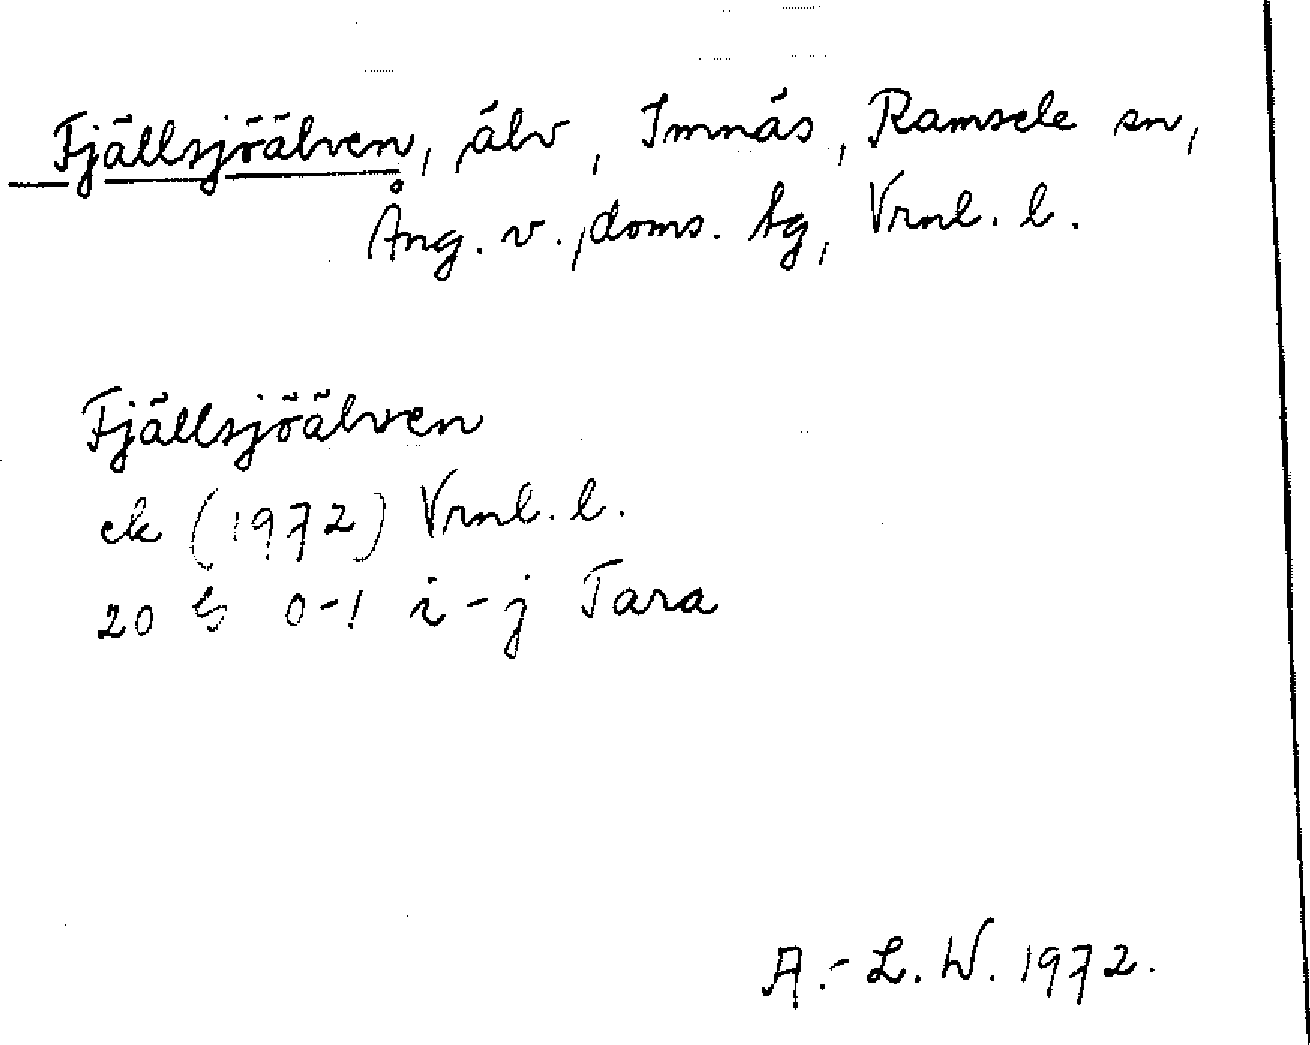 Fjällsjöälven, älv, Imnäs, Ramsele sn,
Ång. v., doms. tg, Vrnl. l.
Fjällsjöälven
ek (1972) Vrnl. l.
20 G 0-1 i-j Tara
A.-L. W. 1972.